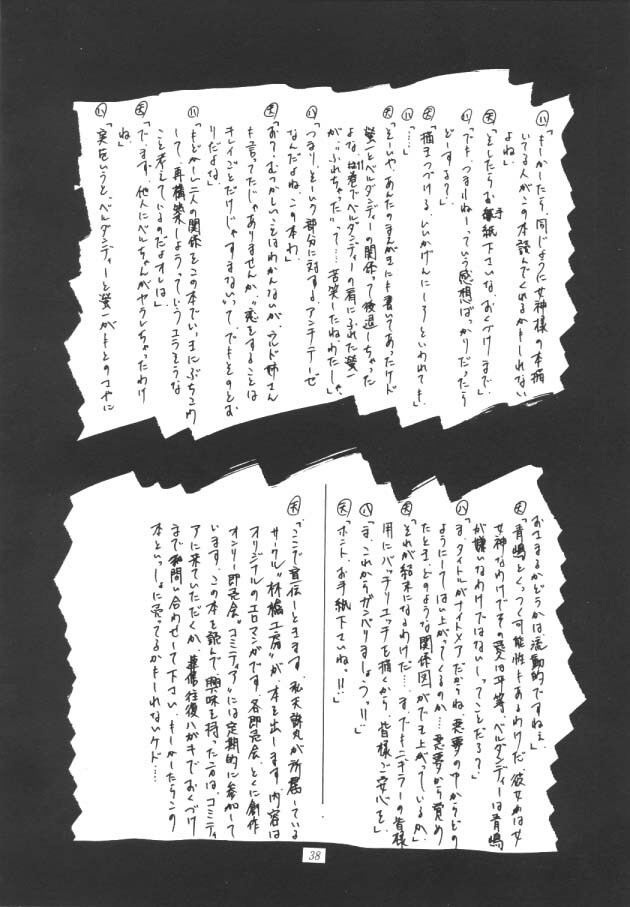 ㋩「もしかしたら、同じように女神様の本描
いてる人がこの本読んでくれるかもしれない
よね」
㋝「そしたらお手紙下さいな、おくづけまで」
㋩「でも、つまりねーっていう感想ばっかりだったら
どーする？」
㋝「描きつづける、いいかげんにしろといわれても」
㋩「……」
㋝「そーいや、あんたのまんがにも書いてあったけど
螢一とベルダンディーの関係って後退しちゃった
よな、1巻でベルダンディーの肩にふれた螢一
が、“ふれちゃった”って……苦笑したねわたしゃ」
㋩「つまり、そーいう部分に対するアンチテーゼ
なんだよね、この本わ」
㋝「おう、むつかしいことはわかんないが、ウルド姉さん
も言ってたじゃありませんか、“恋をすることは
キレイごとだけじゃすまない”って、でもそのとお
りだよな」
㋩「もどかしい二人の関係をこの本でいっきにぶちこわ
して、再構築しようっていうエラそうな
こと考えているのだよオレは」
㋝「でまず、他人にベルちゃんがヤラレちゃったわけ
ね」
㋩「実をいうと、ベルダンディーと螢一がもとのさやに
おさまるかどうかは、流動的ですねぇ」
㋝「青嶋とくっつく可能性もあるわけだ、彼女わは女
女神なわけでその愛は平等、ベルダンディーは青嶋
が嫌いなわけではないしってことだろ？」
㋩「ま、タイトルがナイトメアだからね、悪夢の中からどの
ようにしてはい上がってくるのか……悪夢から覚め
たとき、どのような関係図ができ上がっているか、
それが結末になるわけだ……、すでもニナラーの皆様
用にバッチリエッチを描くから、皆様ご安心を」
㋩「ま、これからガンバりましょっつ!!」
㋝「ホント、お手紙下さいね!!」
㋝「ここで宣伝しときます、私天誅丸が所属している
サークル“林檎工房”が本を出します、内容は
オリジナルのエロマンガです、各即売会、とくに創作
オンリー即売会“コミティア”には定期的に参加して
います、この本を読んで興味を持った方は、コミティ
アに来ていただくか、葉書往復ハガキでおくづけ
まで問い合わせして下さい、もしかしたらこの
本といっしょに売ってるかもしれないケド……
38